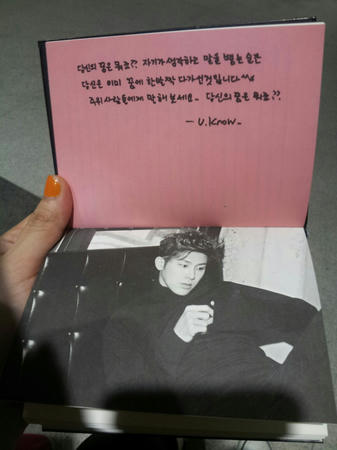 당신의 꿈은 뭐죠?? 자기가 생각하고 말을 뱉는 순간
당신은 이미 꿈에 한발짝 다가선것 입니다^^
주위사람들에게 말해 보세요~ 당신의 꿈은 뭐죠??
- U.Know~